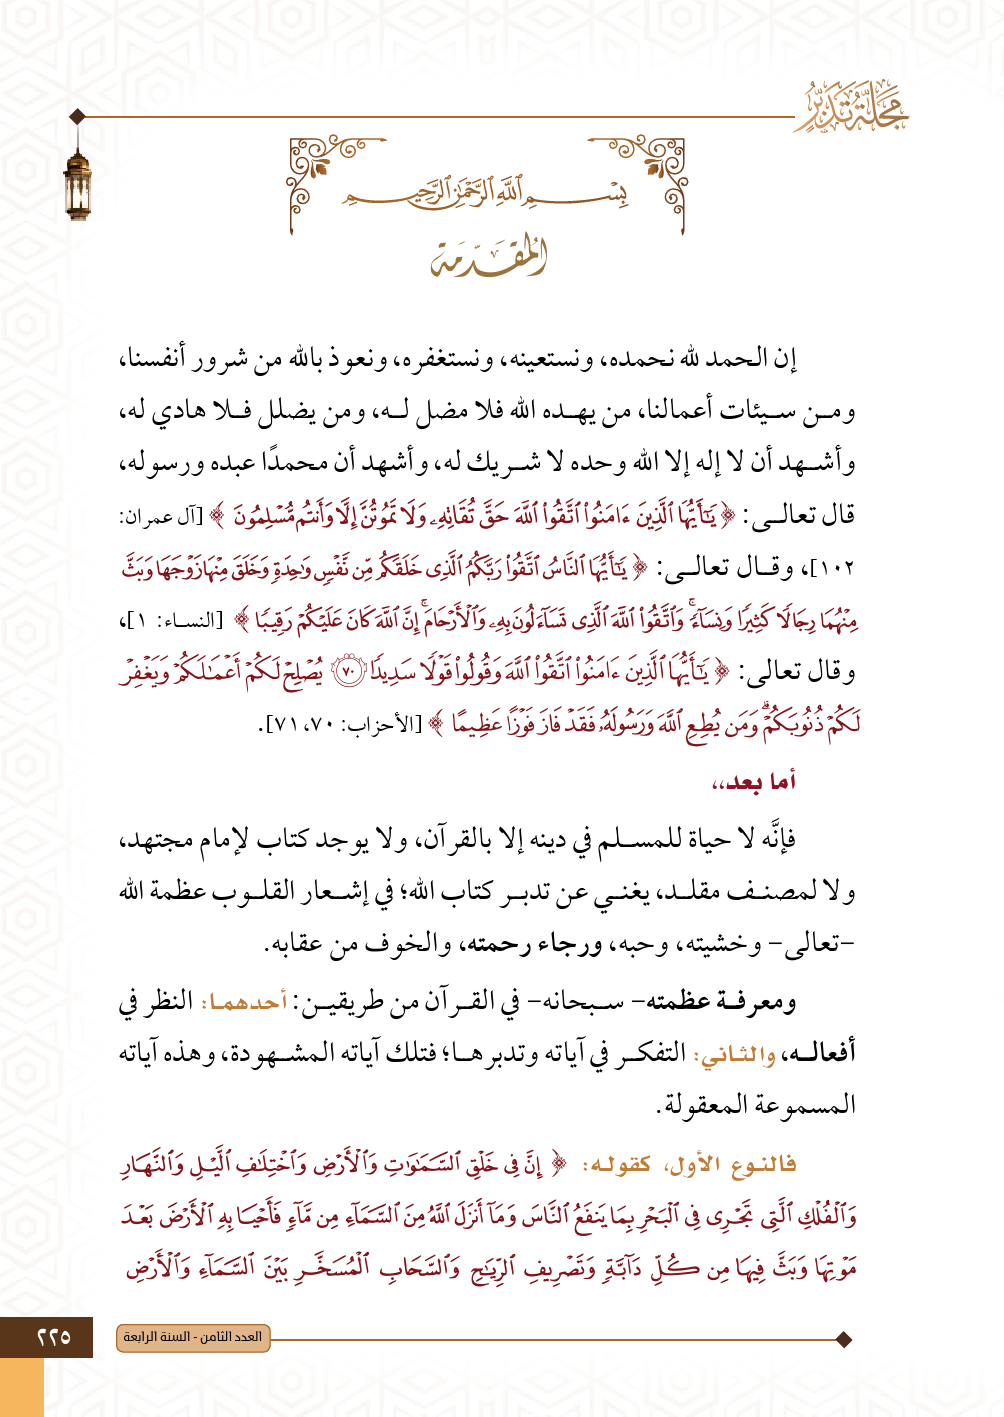 مجلة تدبر
بِسْمِ اللَّهِ الرَّحْمَٰنِ الرَّحِيمِ
المقدّمة
إن الحمد لله نحمده، ونستعينه، ونستغفره، ونعوذ بالله من شرور أنفسنا،
ومن سيئات أعمالنا، من يهده الله فلا مضل له، ومن يضلل فلا هادي له،
وأشهد أن لا إله إلا الله وحده لا شريك له، وأشهد أن محمدًا عبده ورسوله،
قال تعالى: ﴿ يَٰٓأَيُّهَا ٱلَّذِينَ ءَامَنُوا۟ ٱتَّقُوا۟ ٱللَّهَ حَقَّ تُقَاتِهِۦ وَلَا تَمُوتُنَّ إِلَّا وَأَنتُم مُّسْلِمُونَ ﴾ [آل عمران:
١٠٢]، وقال تعالى: ﴿ يَٰٓأَيُّهَا ٱلنَّاسُ ٱتَّقُوا۟ رَبَّكُمُ ٱلَّذِى خَلَقَكُم مِّن نَّفْسٍ وَٰحِدَةٍ وَخَلَقَ مِنْهَا زَوْجَهَا وَبَثَّ
مِنْهُمَا رِجَالًا كَثِيرًا وَنِسَآءً ۚ وَٱتَّقُوا۟ ٱللَّهَ ٱلَّذِى تَسَآءَلُونَ بِهِۦ وَٱلْأَرْحَامَ ۚ إِنَّ ٱللَّهَ كَانَ عَلَيْكُمْ رَقِيبًا ﴾ [النساء: ١]،
وقال تعالى: ﴿ يَٰٓأَيُّهَا ٱلَّذِينَ ءَامَنُوا۟ ٱتَّقُوا۟ ٱللَّهَ وَقُولُوا۟ قَوْلًا سَدِيدًا ٧٠ يُصْلِحْ لَكُمْ أَعْمَٰلَكُمْ وَيَغْفِرْ
لَكُمْ ذُنُوبَكُمْ ۗ وَمَن يُطِعِ ٱللَّهَ وَرَسُولَهُۥ فَقَدْ فَازَ فَوْزًا عَظِيمًا ﴾ [الأحزاب: ٧٠، ٧١].
أما بعد،،
فإنَّه لا حياة للمسلم في دينه إلا بالقرآن، ولا يوجد كتاب لإمام مجتهد،
ولا لمصنف مقلد، يغني عن تدبر كتاب الله؛ في إشعار القلوب عظمة الله
-تعالى- وخشيته، وحبه، ورجاء رحمته، والخوف من عقابه.
ومعرفة عظمته- سبحانه- في القرآن من طريقين: أحدهما: النظر في
أفعاله، والثاني: التفكر في آياته وتدبرها؛ فتلك آياته المشهودة، وهذه آياته
المسموعة المعقولة.
فالنوع الأول، كقوله: ﴿ إِنَّ فِى خَلْقِ ٱلسَّمَٰوَٰتِ وَٱلْأَرْضِ وَٱخْتِلَٰفِ ٱلَّيْلِ وَٱلنَّهَارِ
وَٱلْفُلْكِ ٱلَّتِى تَجْرِى فِى ٱلْبَحْرِ بِمَا يَنفَعُ ٱلنَّاسَ وَمَآ أَنزَلَ ٱللَّهُ مِنَ ٱلسَّمَآءِ مِن مَّآءٍ فَأَحْيَا بِهِ ٱلْأَرْضَ بَعْدَ
مَوْتِهَا وَبَثَّ فِيهَا مِن كُلِّ دَآبَّةٍ وَتَصْرِيفِ ٱلرِّيَٰحِ وَٱلسَّحَابِ ٱلْمُسَخَّرِ بَيْنَ ٱلسَّمَآءِ وَٱلْأَرْضِ
العدد الثامن - السنة الرابعة
٢٢٥